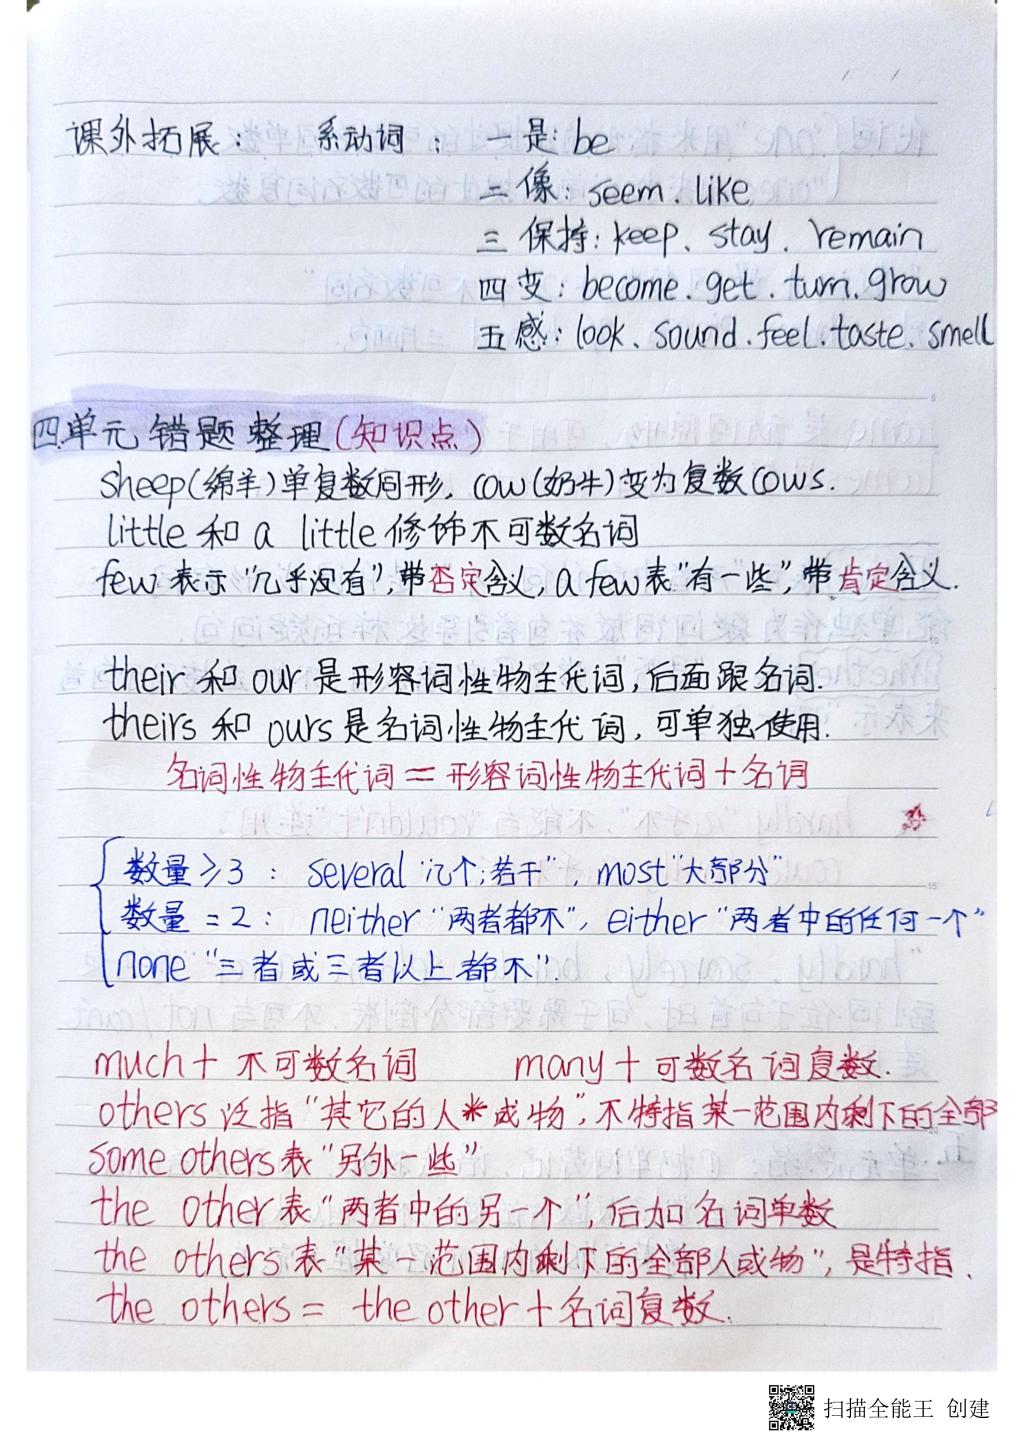 课外拓展: 系动词: 一是: be
二像: seem、like
三保持: keep、stay、remain
四变: become、get、turn、grow
五感: look、sound、feel、taste、smell
四单元错题整理(知识点)
sheep(绵羊)单复数同形, cow(奶牛)变为复数cows.
little 和 a little 修饰不可数名词
few 表示“几乎没有”,带否定含义, a few表“有一些”,带肯定含义.
their 和 our 是形容词性物主代词,后面跟名词.
theirs 和 ours 是名词性物主代词,可单独使用.
名词性物主代词=形容词性物主代词+名词
数量≥3: several“几个;若干”, most“大部分”
数量=2: neither“两者都不”, either“两者中的任何一个”
none“三者或三者以上都不”.
much+不可数名词 many+可数名词复数.
others 泛指“其它的人或物”,不特指某一范围内剩下的全部
some others表“另外一些”
the other表“两者中的另一个”,后加名词单数
the others表“某一范围内剩下的全部人或物”,是特指.
the others = the other+名词复数.
扫描全能王 创建